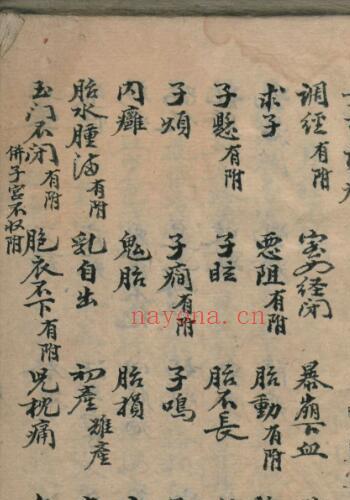 调经有附 室女经闭 暴崩下血
求子 恶阻有附 胎动有附
子悬有附 子眩 胎不长
子烦 子痫有附 子鸣
内癰 鬼胎 胎损
胎水腫满有附 乳自出 初產雄產
玉门不闭有附 胞衣不下有附 児枕痛
併子宫不收附
nayona.cn